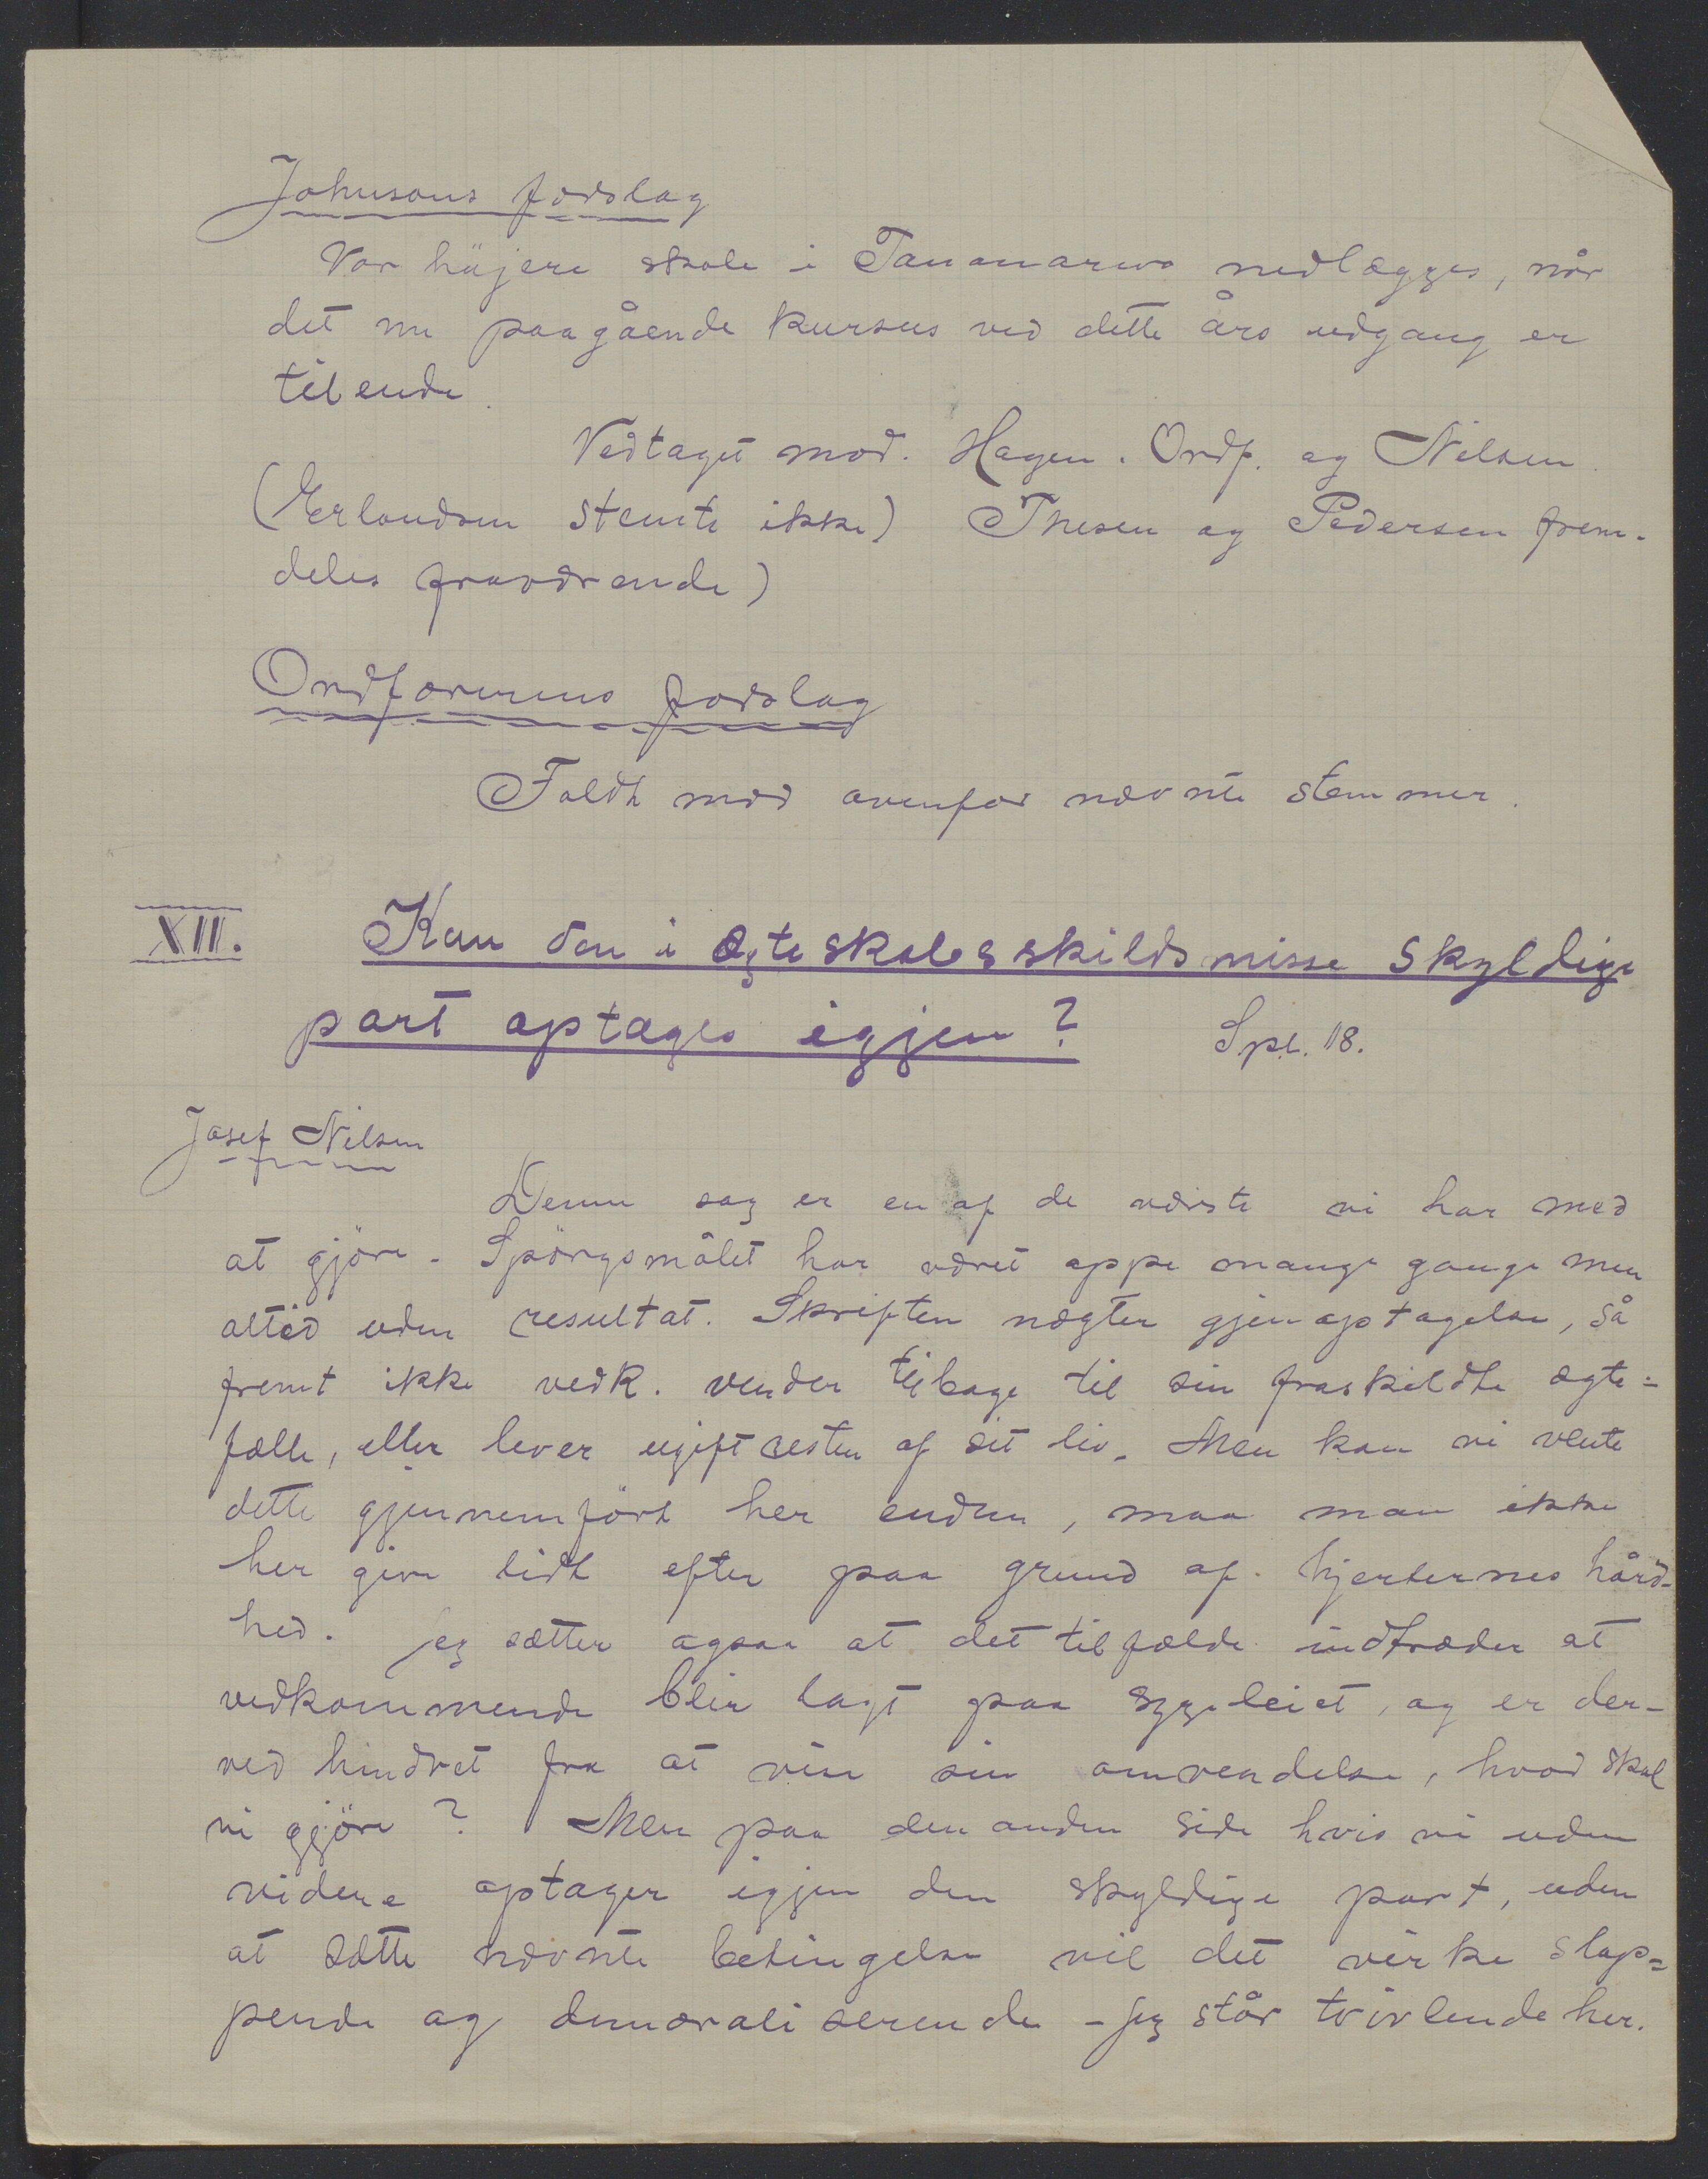 Johnsons forslag
Vor höjere skole i Tananarivo nedlægges, når
det nu paagående kursus ved dette års udgang er
tilende.
Vedtaget mod. Hagen. Ordf. og Nilsen.
(Erlandsen stemte ikke) Thesen og Pedersen frem-
deles fraværende)
Ordførerens forslag
Faldt mod ovenfor nævnte stemmer.
XII. Kan den i ægteskabsskildsmisse skyldige
part optages igjen? Spl. 18.
Josef Nilsen
Denne sag er en af de værste vi har med
at gjöre. Spörgsmålet har været oppe mange gange men
altid uden resultat. Skriften nægter gjenoptagelse, så
fremt ikke vedk. vender tilbage til sin fraskildte ægte=
fælle, eller lever ugift resten af sit liv. Men kan vi vente
dette gjennemfört her endnu, maa man ikke
her give lidt efter paa grund af hjerternes hård-
hed. Jeg sætter ogsaa at det tilfælde indtræder at
vedkommende blir lagt paa sygeleiet, og er der-
ved hindret fra at vise sin omvendelse, hvad skal
vi gjöre? Men paa den anden side hvis vi uden
videre optager igjen den skyldige part, uden
at sætte nævnte betingelse vil det virke slap=
pende og demoraliserende - Jeg står tvivlende her.